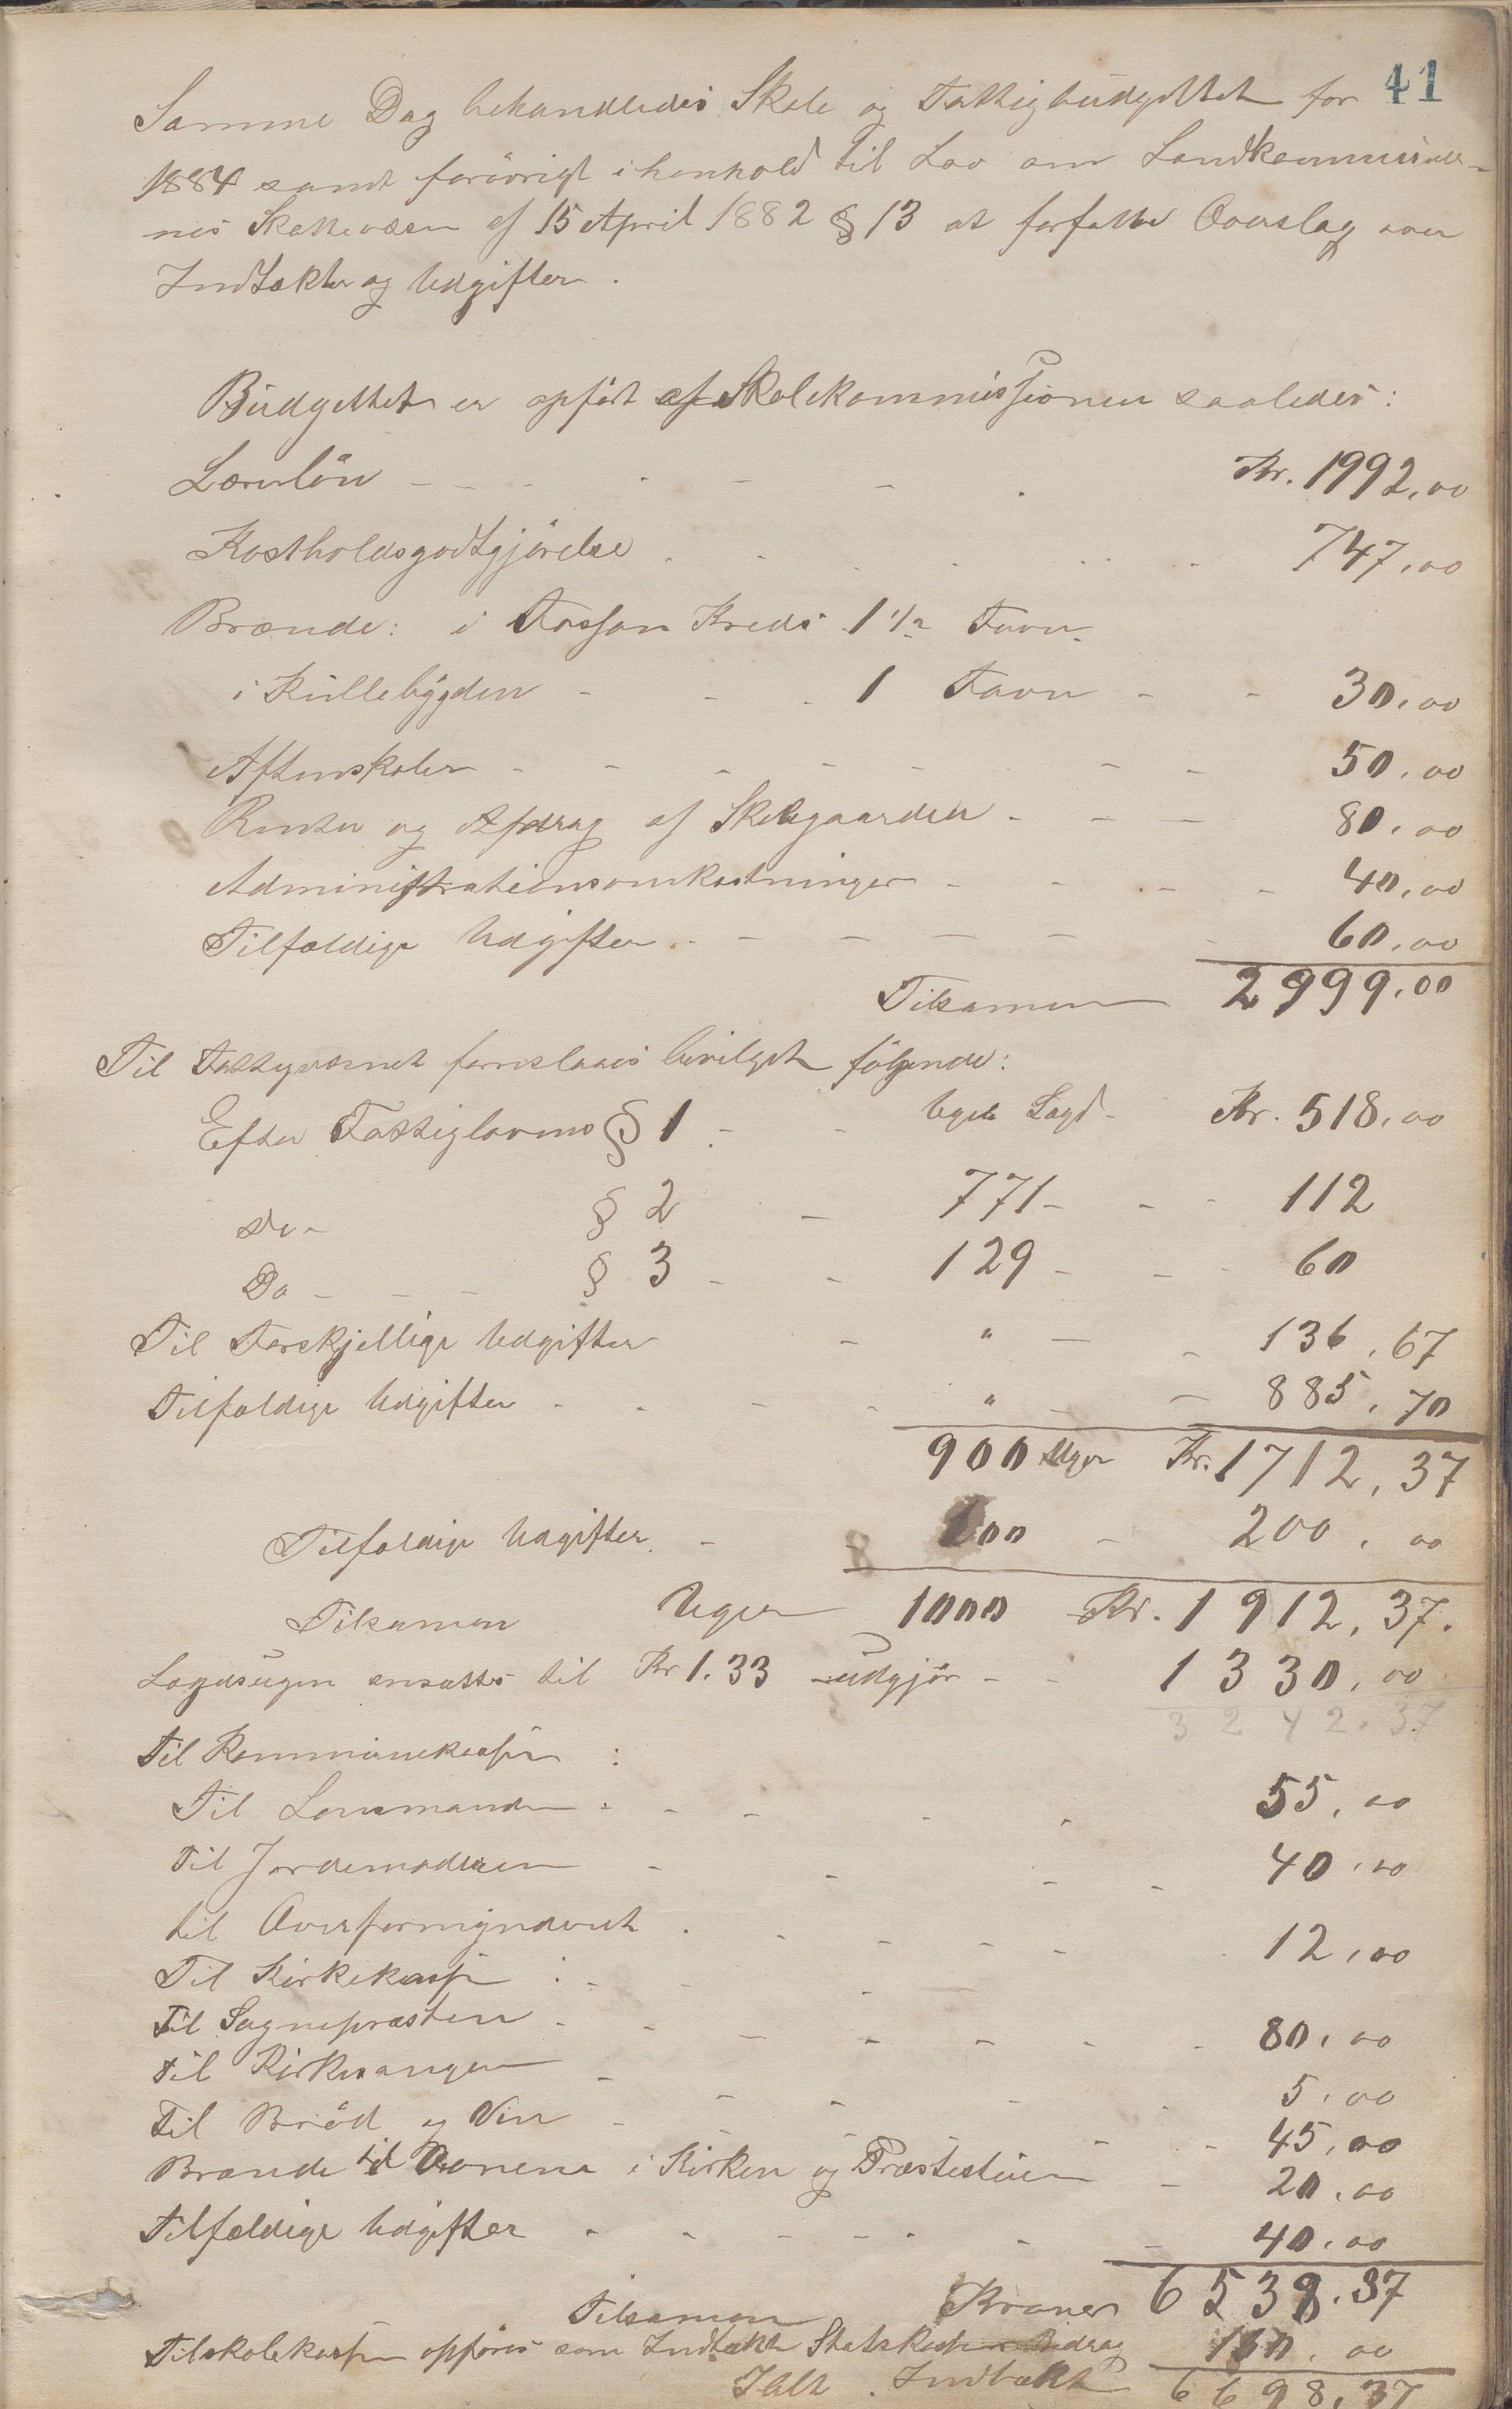 41
Samme Dag behandledes Skole og Fattigbudgettet for
1884 samt forövrigt i henhold til Lov om Landkommuner-
nes Skattevæsen af 15 April 1882 § 13 at forfatte Overslag over
Indtækter og Udgifter.
Budgettet er opfört af Skolekommissionen saaledes:
Lærerlön - - - Kr. 1992,00
Kostholdsgodtgjörelse 747,00
Brænde: i Fossan Kreds 1 1/2 Favn.
i Kullebygden - - 1 Favn - - 30,00
Aftenskoler - - - 50,00
Renter og Afdrag af Skolegaarden - - 80,00
Administrationsomkostninger - - 40,00
Tilfældige Udgifter - - 60,00
Tilsamen 2999,00
Til Fattigvæsnet foreslaaes bevilget følgende:
Efter Fattiglovens § 1 - Uger Lægd - Kr. 518,00
Do - § 2 - 771 - - 112
Do - § 3 - 129 - - 60
Til Forskjellige Udgifter - " - 136,67
Tilfældige Udgifter - " - 885,70
900 Uger Kr. 1712,37
Tilfældige Udgifter - 100 - 200,00
Tilsamen Uger 1000 Kr. 1912,37.
Lægdsugen ansættes til Kr 1.33 udgjör - - 1330,00
3242.37
Til Kommunekassen :
Til Lensmanden - - 55,00
Til Jordemoderen - 40,00
til Overformynderiet - 12,00
Til Kirkekassen :
Til Sognepræsten - 80,00
til Kirkesangen - 5,00
Til Bröd og Vin - 45,00
Brænde til Ovnene i Kirken og Præstestuen - 20,00
Tilfældige Udgifter - 40,00
Tilsamen Kroner 6538.37
Til skolekassen opföres som Indtækt Statskassens Bidrag 160,00
Ialt Indtækt 6698,37